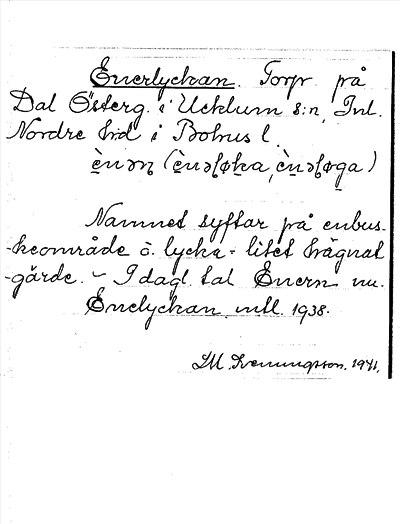 Enerlyckan. Torp på
Dal Österg. i Ucklum s:n, Inl.
Nordre hd i Bohus l.
Namnet syftar på enbus-
-keområde o. lycka = litet hägnat
-gärde. - I dagl. tal Enern nu.
Enelyckan, mtl. 1938.
1941.